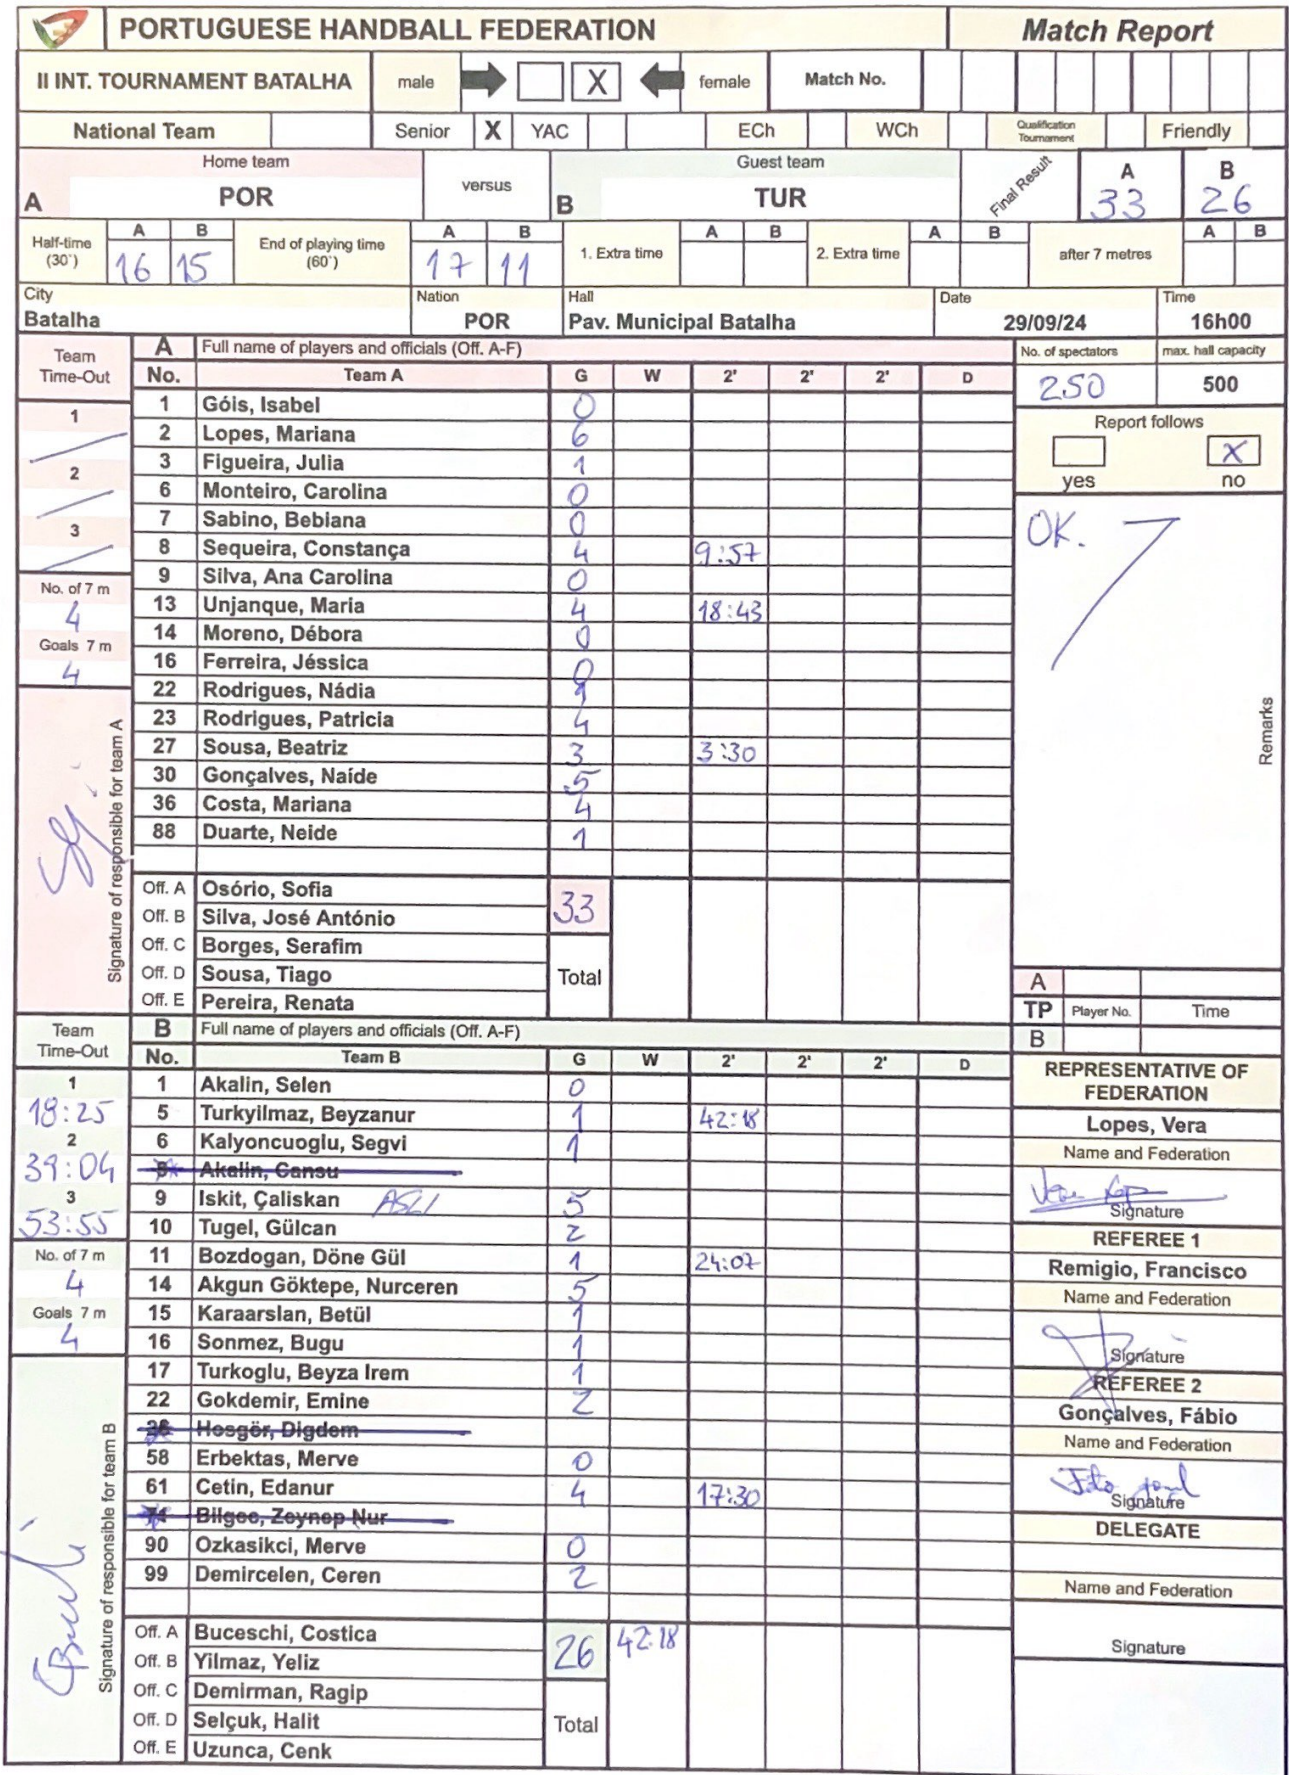 PORTUGUESE HANDBALL FEDERATION Match Report
II INT. TOURNAMENT BATALHA male X female Match No.
National Team Senior X YAC ECh WCh Qualification Tournament Friendly
Home team Guest team
A POR versus B TUR Final Result A 33 B 26
A B A B A B A B A B
Half-time (30`) 16 15 End of playing time (60`) 17 11 1. Extra time 2. Extra time after 7 metres
City Nation Hall Date Time
Batalha POR Pav. Municipal Batalha 29/09/24 16h00
Team Time-Out A Full name of players and officials (Off. A-F) No. of spectators max. hall capacity
No. Team A G W 2' 2' 2' D 250 500
1 Góis, Isabel 0
2 Lopes, Mariana 6
3 Figueira, Julia 1
6 Monteiro, Carolina 0
7 Sabino, Bebiana 0
8 Sequeira, Constança 4 9:57
9 Silva, Ana Carolina 0
13 Unjanque, Maria 4 18:43
14 Moreno, Débora 0
16 Ferreira, Jéssica 0
22 Rodrigues, Nádia 1
23 Rodrigues, Patricia 4
27 Sousa, Beatriz 3 3:30
30 Gonçalves, Naíde 5
36 Costa, Mariana 4
88 Duarte, Neide 1
Off. A Osório, Sofia 33
Off. B Silva, José António
Off. C Borges, Serafim
Off. D Sousa, Tiago Total
Off. E Pereira, Renata
1
2
3
No. of 7 m
4
Goals 7 m
4
Signature of responsible for team A
Report follows
X
yes no
OK.
Remarks
A
TP Player No. Time
B
Team Time-Out B Full name of players and officials (Off. A-F)
No. Team B G W 2' 2' 2' D
1 Akalin, Selen 0
5 Turkyilmaz, Beyzanur 1 42:18
6 Kalyoncuoglu, Segvi 1
Akalin, Cansu
9 Iskit, Çaliskan ASLI 5
10 Tugel, Gülcan 2
11 Bozdogan, Döne Gül 1 24:07
14 Akgun Göktepe, Nurceren 5
15 Karaarslan, Betül 1
16 Sonmez, Bugu 1
17 Turkoglu, Beyza Irem 1
22 Gokdemir, Emine 2
Hosgör, Digdem
58 Erbektas, Merve 0
61 Cetin, Edanur 4 17:30
74 Bilgec, Zeynep Nur
90 Ozkasikci, Merve 0
99 Demircelen, Ceren 2
Off. A Buceschi, Costica 26 42:18
Off. B Yilmaz, Yeliz
Off. C Demirman, Ragip
Off. D Selçuk, Halit Total
Off. E Uzunca, Cenk
1
18:25
2
39:04
3
53:55
No. of 7 m
4
Goals 7 m
4
Signature of responsible for team B
REPRESENTATIVE OF FEDERATION
Lopes, Vera
Name and Federation
Signature
REFEREE 1
Remigio, Francisco
Name and Federation
Signature
REFEREE 2
Gonçalves, Fábio
Name and Federation
Signature
DELEGATE
Name and Federation
Signature